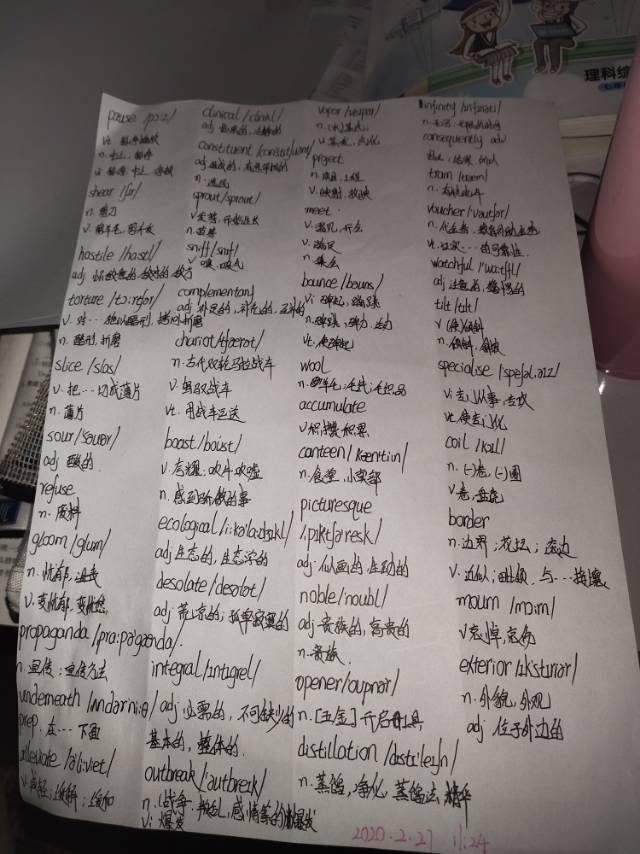 理科综
pause /pɔ:z/
n. 停止、暂停
shear /ʃɪr/
n. 剪刀
v. 剪羊毛,
hostile /hɑstl/
adj
torture /tɔ:rtʃər/
v. 对…施以酷刑,
n. 酷刑, 折磨
slice /slaɪs/
v. 把…切成薄片
n. 薄片
sour /saʊər/
adj 酸的.
refuse
n. 废料
gloom /glum/
n. 忧郁,
v. 变忧郁,
propaganda /prɑ:pəgændə/
n. 宣传; 宣传方法
underneath /ˌʌndərni:θ/
prep. 在…下面
alleviate /əli:viet/
v
clinical /clinikl/
adj 临床的,
constituent
adj 组成的,
n. 选民
sprout /sprout/
v 发芽, 开始生长
n 苗芽
sniff /snɪf/
v 嗅,
complementary
adj 补足的,
chariot /tʃæriət/
n. 古代双轮马拉战车
v. 驾驭战车
vt. 用战车运送
boast /boust/
v. 夸耀; 吹牛
n. 感到骄傲的事
ecological /i:kəlɑdʒɪkl/
adj 生态的, 生态学的
desolate /desəlɪt/
adj 荒凉的; 孤单寂寞的
integral /ɪntɪgrəl/
adj 必需的, 不可缺少的
基本的, 整体的.
outbreak /'autbreɪk/
n. (战争、叛乱, 感情等的) 爆发
vi. 爆发
vapor /veɪpər/
n. (水)蒸气
v. 蒸发,
project
n. 项目, 工程
v. 放映
meet
n. 集会
bounce /bauns/
vi 弹起,
n. 弹跳, 弹力, 活力
vt. 使弹起
wool
n. 羊毛; 毛线; 毛织品
accumulate
v 积攒 积累
canteen /kænˈtin/
n. 食堂, 小卖部
picturesque
/ˌpɪktʃəresk/
adj. 似画的, 生动的
noble /noubl/
adj 贵族的, 高贵的
n. 贵族.
opener /oupnər/
n. [五金] 开启工具
distillation /dɪstɪleɪʃn/
n. 蒸馏, 净化, 蒸馏法; 精华
infinity /ɪnfɪnəti/
consequently adv
因此, 结果, 所以
tram /træm/
n. 有轨电车
voucher /vautʃər/
watchful /wɑtʃfl/
adj 注意的, 警惕的
tilt /tɪlt/
v (使)倾斜
n. 倾斜,
specialise /speʃəlaɪz/
vi 专门从事;
vt. 使专门化
coil /kɔɪl/
n. (一)卷, (一)圈
v 卷, 盘绕
border
n. 边界; 花坛; 滚边
v. 近似; 毗邻, 与…接壤
mourn /mɔ:rn/
v 哀悼, 哀伤
exterior /ɪkstɪriər/
n. 外貌, 外观
adj 位于外边的
2020.2.27 11:24